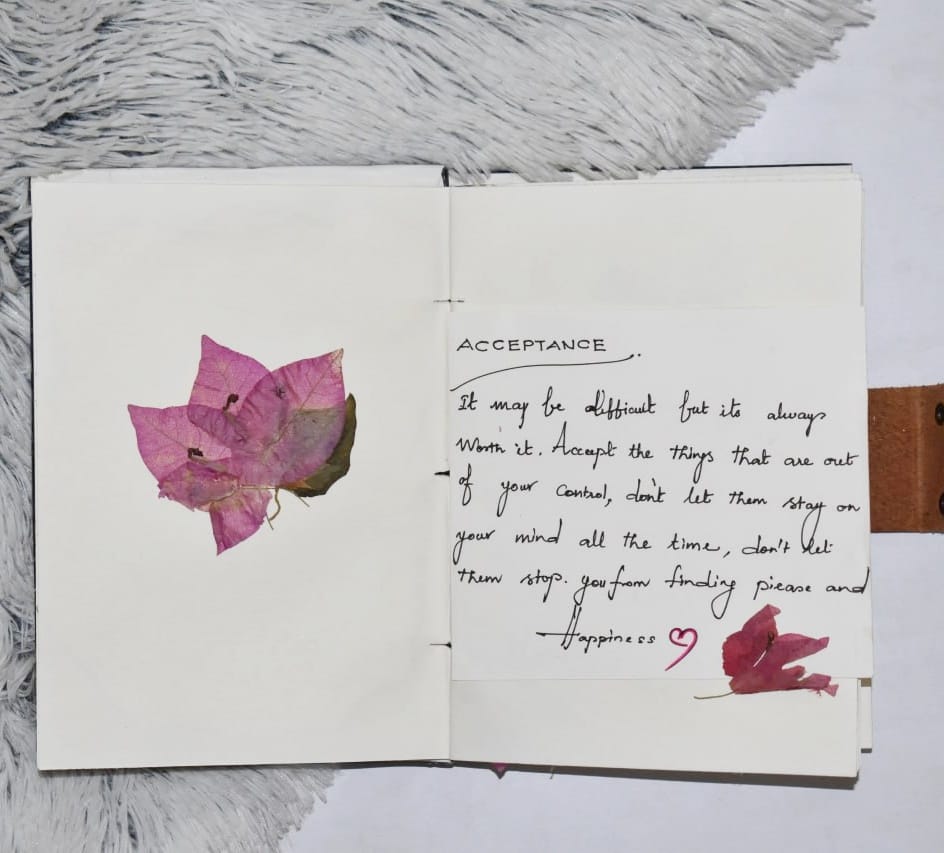 ACCEPTANCE.
It may be difficult but its always
Worth it. Accept the things that are out
of your control, don't let them stay on
your mind all the time, don't let
them stop. you from finding piease and
Happiness